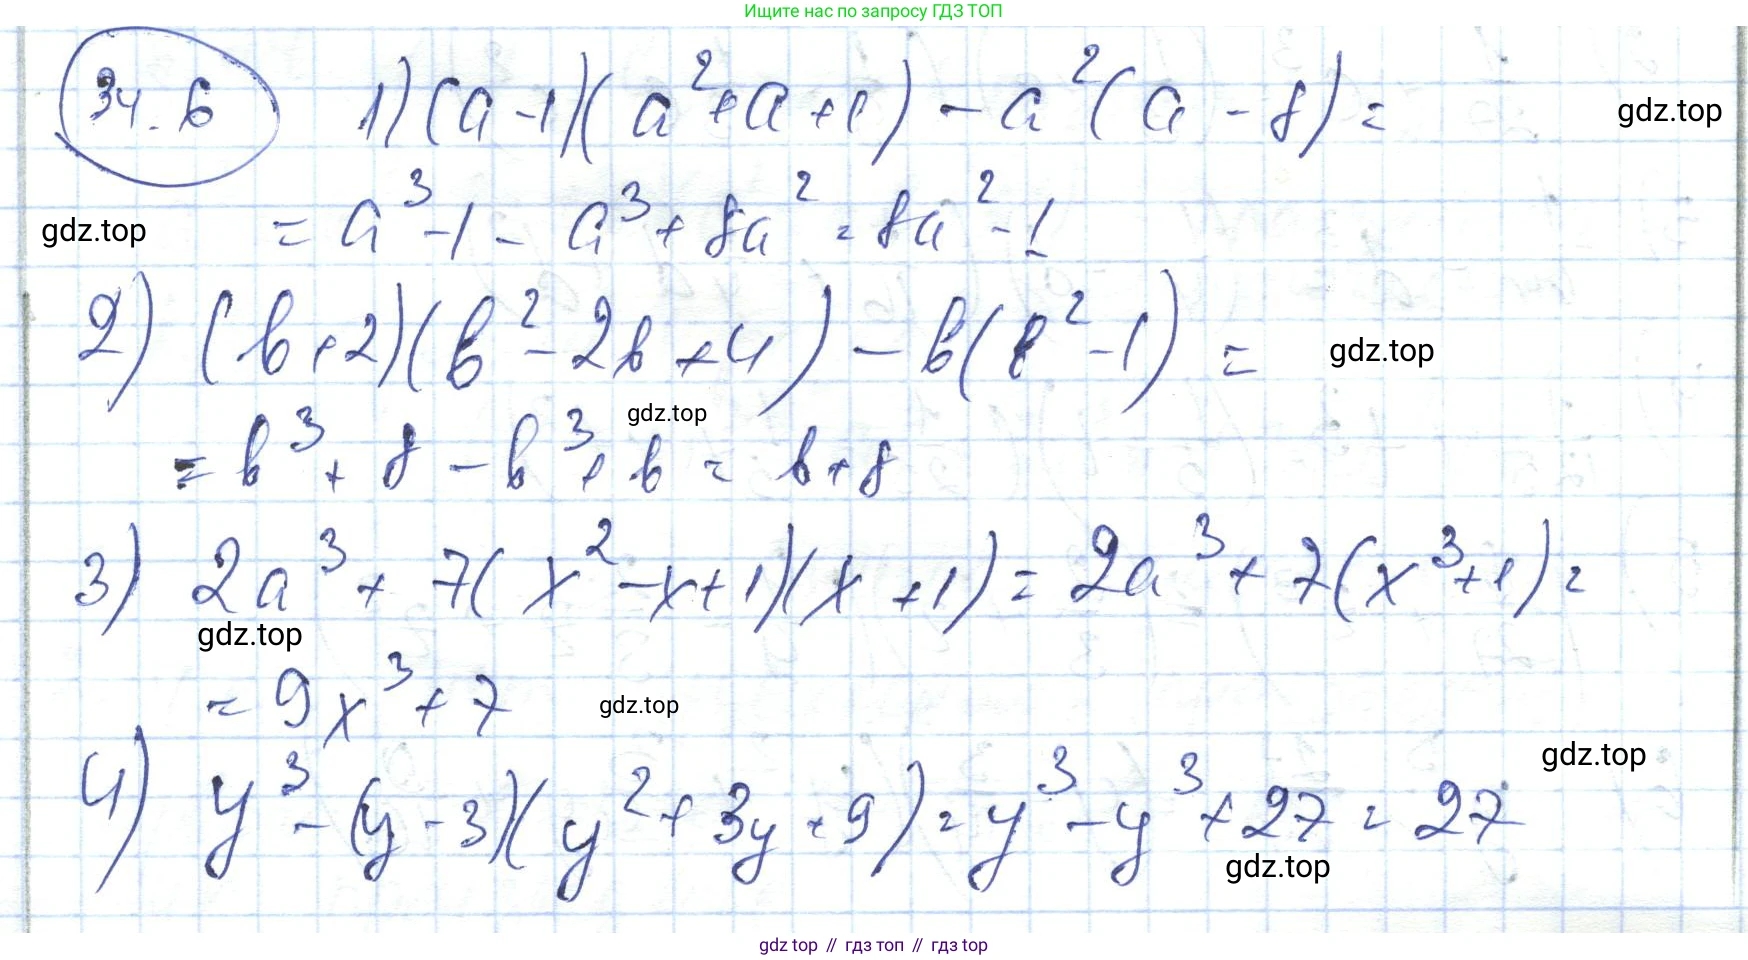 Ищите нас по запросу ГДЗ ТОП
34.6 1) (a-1)(a²+a+1) - a²(a-8) =
gdz.top
= a³-1 - a³+8a² = 8a²-1
gdz.top
2) (b+2)(b²-2b+4) - b(b²-1) =
gdz.top
gdz.top
= b³+8-b³+b = b+8
3) 2a³+7(x²-x+1)(x+1) = 2a³+7(x³+1) =
gdz.top
= 9x³+7
gdz.top
gdz.top
4) y³-(y-3)(y²+3y+9) = y³-y³+27 = 27
gdz.top
gdz top // гдз топ // гдз top